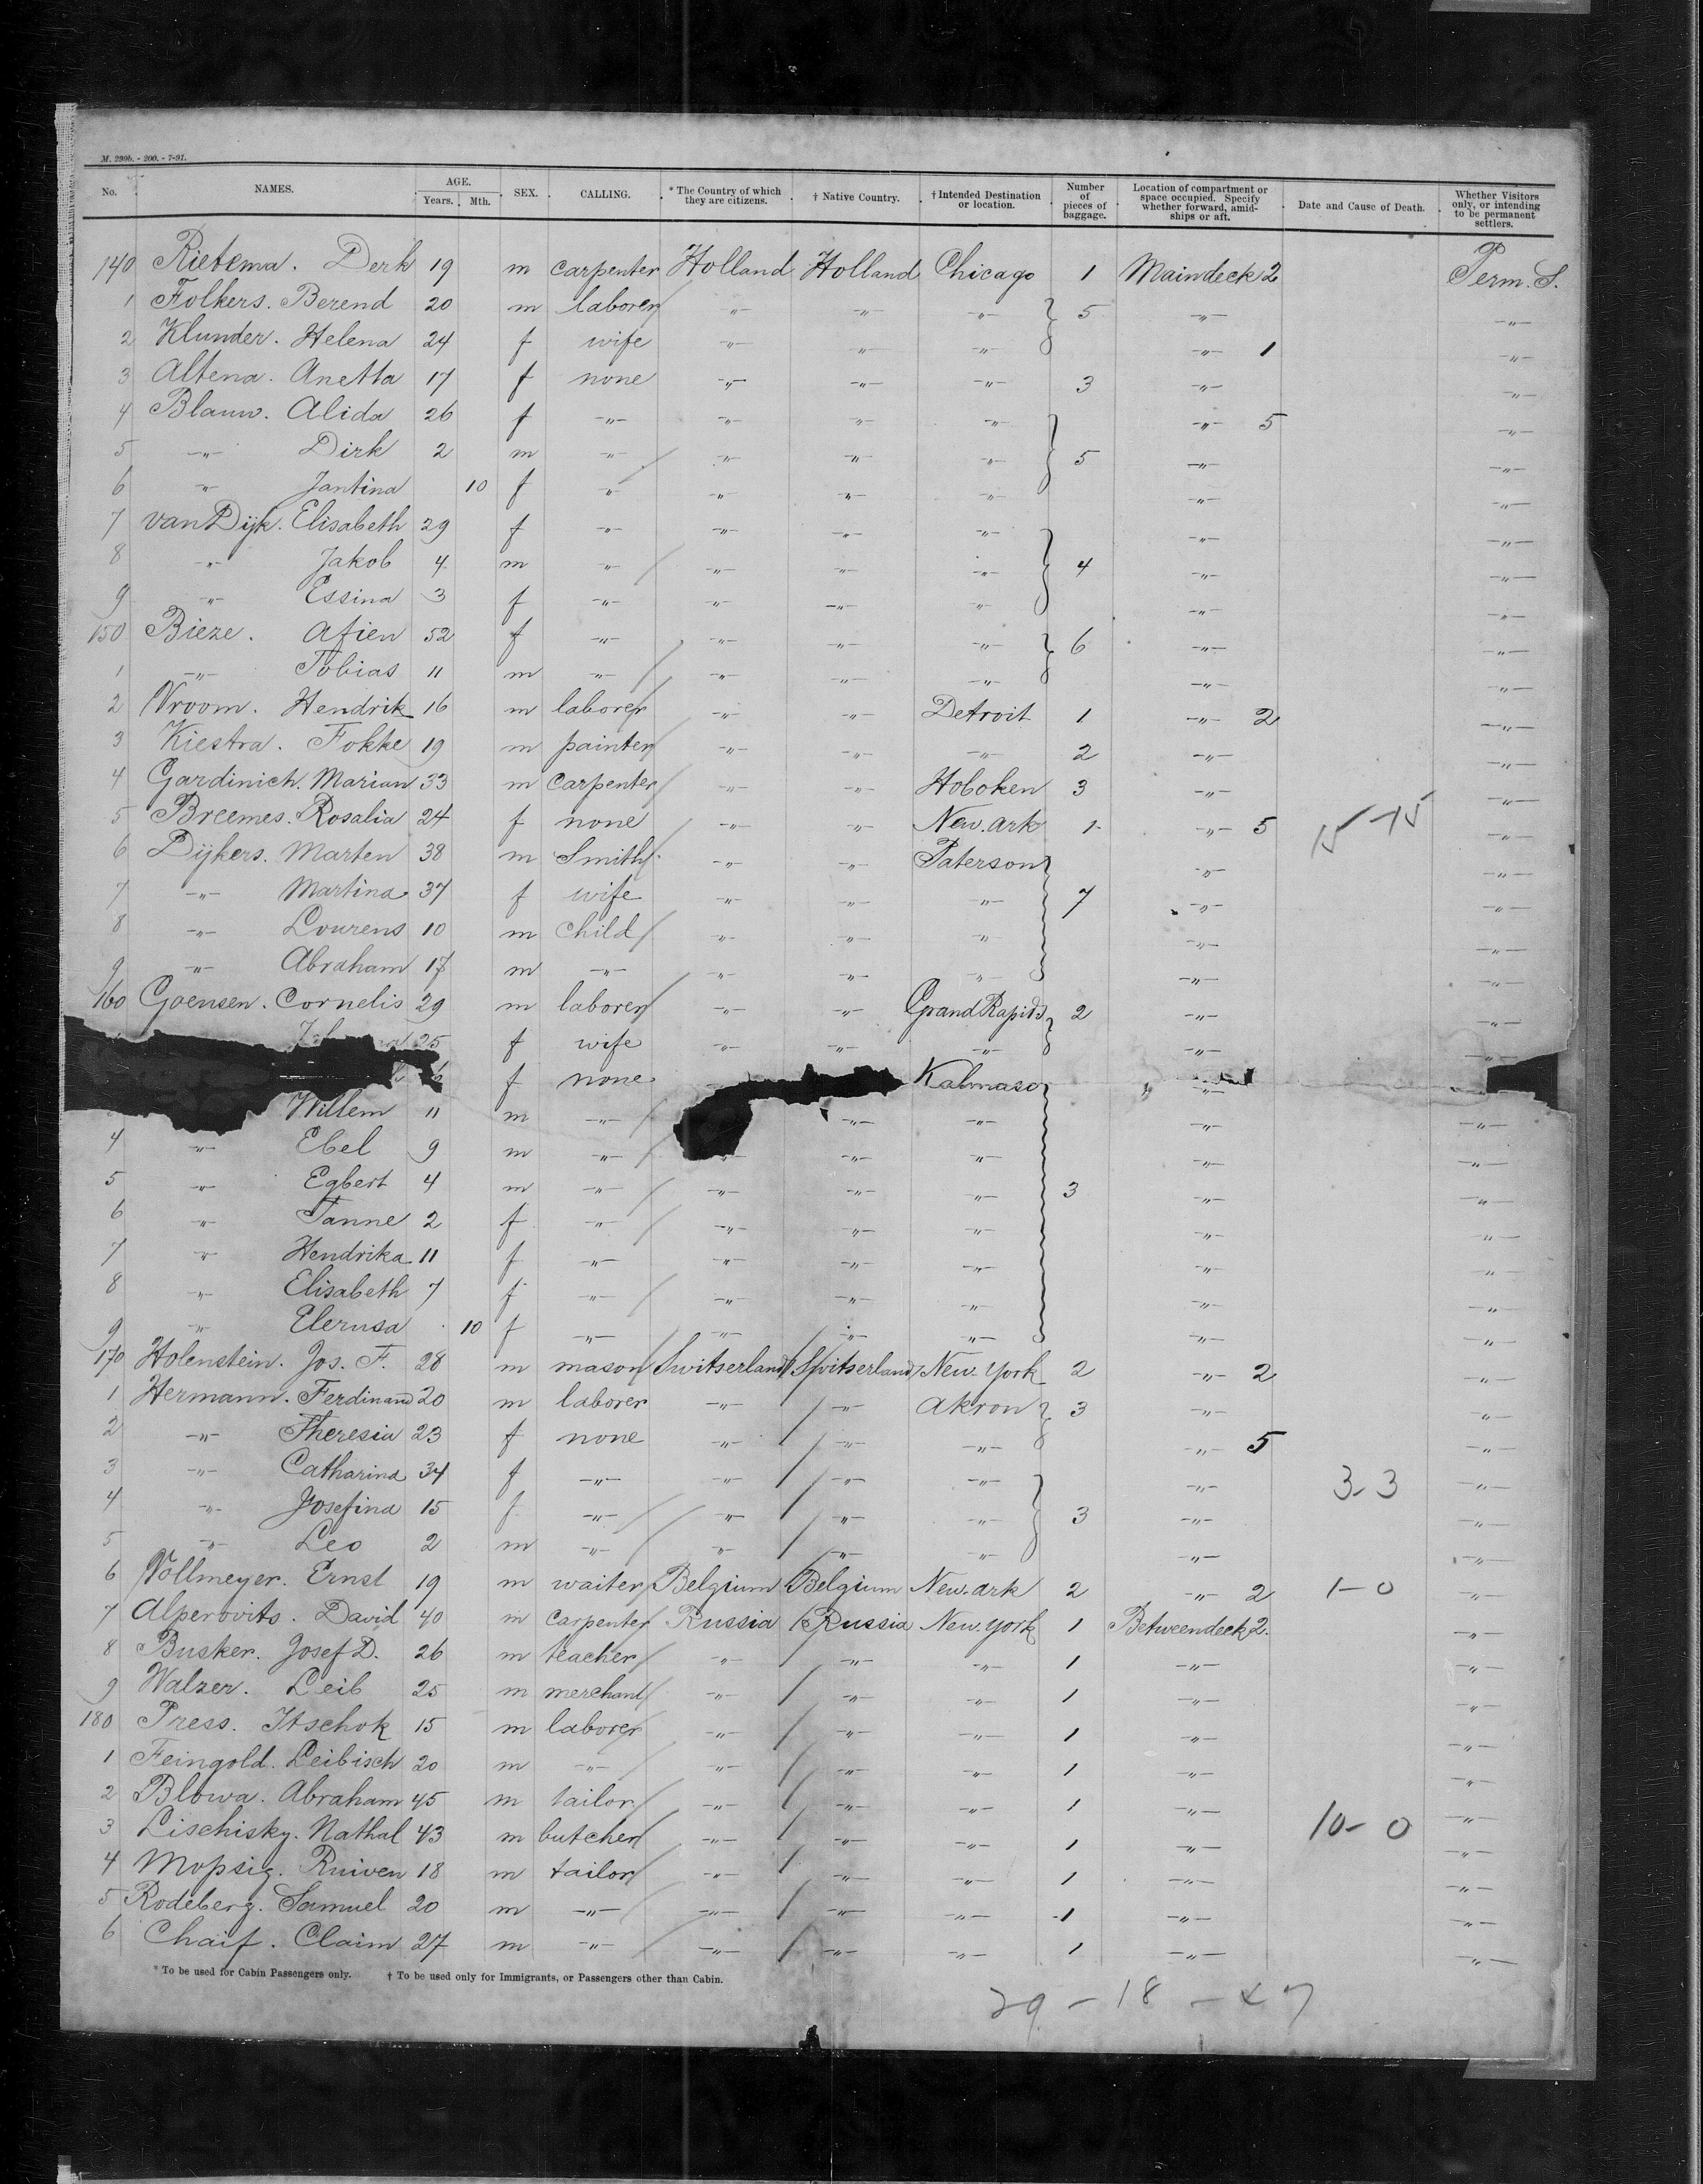 M. 299b. - 200. - 7-91.
No. NAMES. AGE. Years. Mth. SEX. CALLING. * The Country of which they are citizens. † Native Country. † Intended Destination or location. Number of pieces of baggage. Location of compartment or space occupied. Specify whether forward, amidships or aft. Date and Cause of Death. Whether Visitors only, or intending to be permanent settlers.
140 Rietema. Derk 19 m carpenter Holland Holland Chicago 1 Maindeck 2 Perm. S.
1 Folkers. Berend 20 m laborer -"- -"- -"- 5 -"- -"-
2 Klunder. Helena 24 f wife -"- -"- -"- -"- 1 -"-
3 Altena. Anetta 17 f none -"- -"- -"- 3 -"- -"-
4 Blauw. Alida 26 f -"- -"- -"- -"- -"- 5 -"-
5 -"- Dirk 2 m -"- -"- -"- -"- 5 -"- -"-
6 -"- Jantina 10 f -"- -"- -"- -"- -"- -"-
7 van Dijk. Elisabeth 29 f -"- -"- -"- -"- -"- -"-
8 -"- Jakob 4 m -"- -"- -"- -"- 4 -"- -"-
9 -"- Essina 3 f -"- -"- -"- -"- -"- -"-
150 Bieze. Afien 52 f -"- -"- -"- -"- 6 -"- -"-
1 -"- Tobias 11 m -"- -"- -"- -"- -"- -"-
2 Vroom. Hendrik 16 m laborer -"- -"- Detroit 1 -"- 2 -"-
3 Kiestra. Fokke 19 m painter -"- -"- -"- 2 -"- -"-
4 Gardinich. Marian 33 m carpenter -"- -"- Hoboken 3 -"- -"-
5 Breemes. Rosalia 24 f none -"- -"- New. ark 1 -"- 5 15 -15 -"-
6 Dijkers. Marten 38 m Smith -"- -"- Paterson -"- -"-
7 -"- Martina 37 f wife -"- -"- -"- 7 -"- -"-
8 -"- Lourens 10 m child -"- -"- -"- -"- -"-
9 -"- Abraham 17 m -"- -"- -"- -"- -"- -"-
160 Goensen. Cornelis 29 m laborer -"- -"- Grand Rapids 2 -"- -"-
25 f wife -"- -"- -"- -"- -"-
f none Kalmaso -"-
Willem 11 m -"- -"- -"- -"- -"-
4 -"- Ebel 9 m -"- -"- -"- -"- -"- -"-
5 -"- Egbert 4 m -"- -"- -"- -"- 3 -"- -"-
6 -"- Janne 2 f -"- -"- -"- -"- -"- -"-
7 -"- Hendrika 11 f -"- -"- -"- -"- -"- -"-
8 -"- Elisabeth 7 f -"- -"- -"- -"- -"- -"-
9 -"- Elerusa 10 f -"- -"- -"- -"- -"- -"-
170 Holenstein. Jos. F. 28 m mason Switserland Switserland New-York 2 -"- 2 -"-
1 Hermann. Ferdinand 20 m laborer -"- -"- Akron 3 -"- -"-
2 -"- Theresia 23 f none -"- -"- -"- -"- 5 -"-
3 -"- Catharina 34 f -"- -"- -"- -"- -"- 3-3 -"-
4 -"- Josefina 15 f -"- -"- -"- -"- 3 -"- -"-
5 -"- Leo 2 m -"- -"- -"- -"- -"- -"-
6 Vollmeyer. Ernst 19 m waiter Belgium Belgium New-ark 2 -"- 2 1-0 -"-
7 Alperovits. David 40 m carpenter Russia Russia New. York 1 Betweendeck 2. -"-
8 Busker. Josef D. 26 m teacher -"- -"- -"- 1 -"- -"-
9 Walzer. Leib 25 m merchant -"- -"- -"- 1 -"- -"-
180 Press. Itschok 15 m laborer -"- -"- -"- 1 -"- -"-
1 Feingold. Leibisch 20 m -"- -"- -"- -"- 1 -"- -"-
2 Blowa. Abraham 45 m tailor -"- -"- -"- 1 -"- -"-
3 Lischisky. Nathal 43 m butcher -"- -"- -"- 1 -"- 10-0 -"-
4 Mopsig. Ruiven 18 m tailor -"- -"- -"- 1 -"- -"-
5 Rodeberg. Samuel 20 m -"- -"- -"- -"- 1 -"- -"-
6 Chaif. Claim 27 m -"- -"- -"- -"- 1 -"- -"-
* To be used for Cabin Passengers only. † To be used only for Immigrants, or Passengers other than Cabin.
29 - 18 - 47